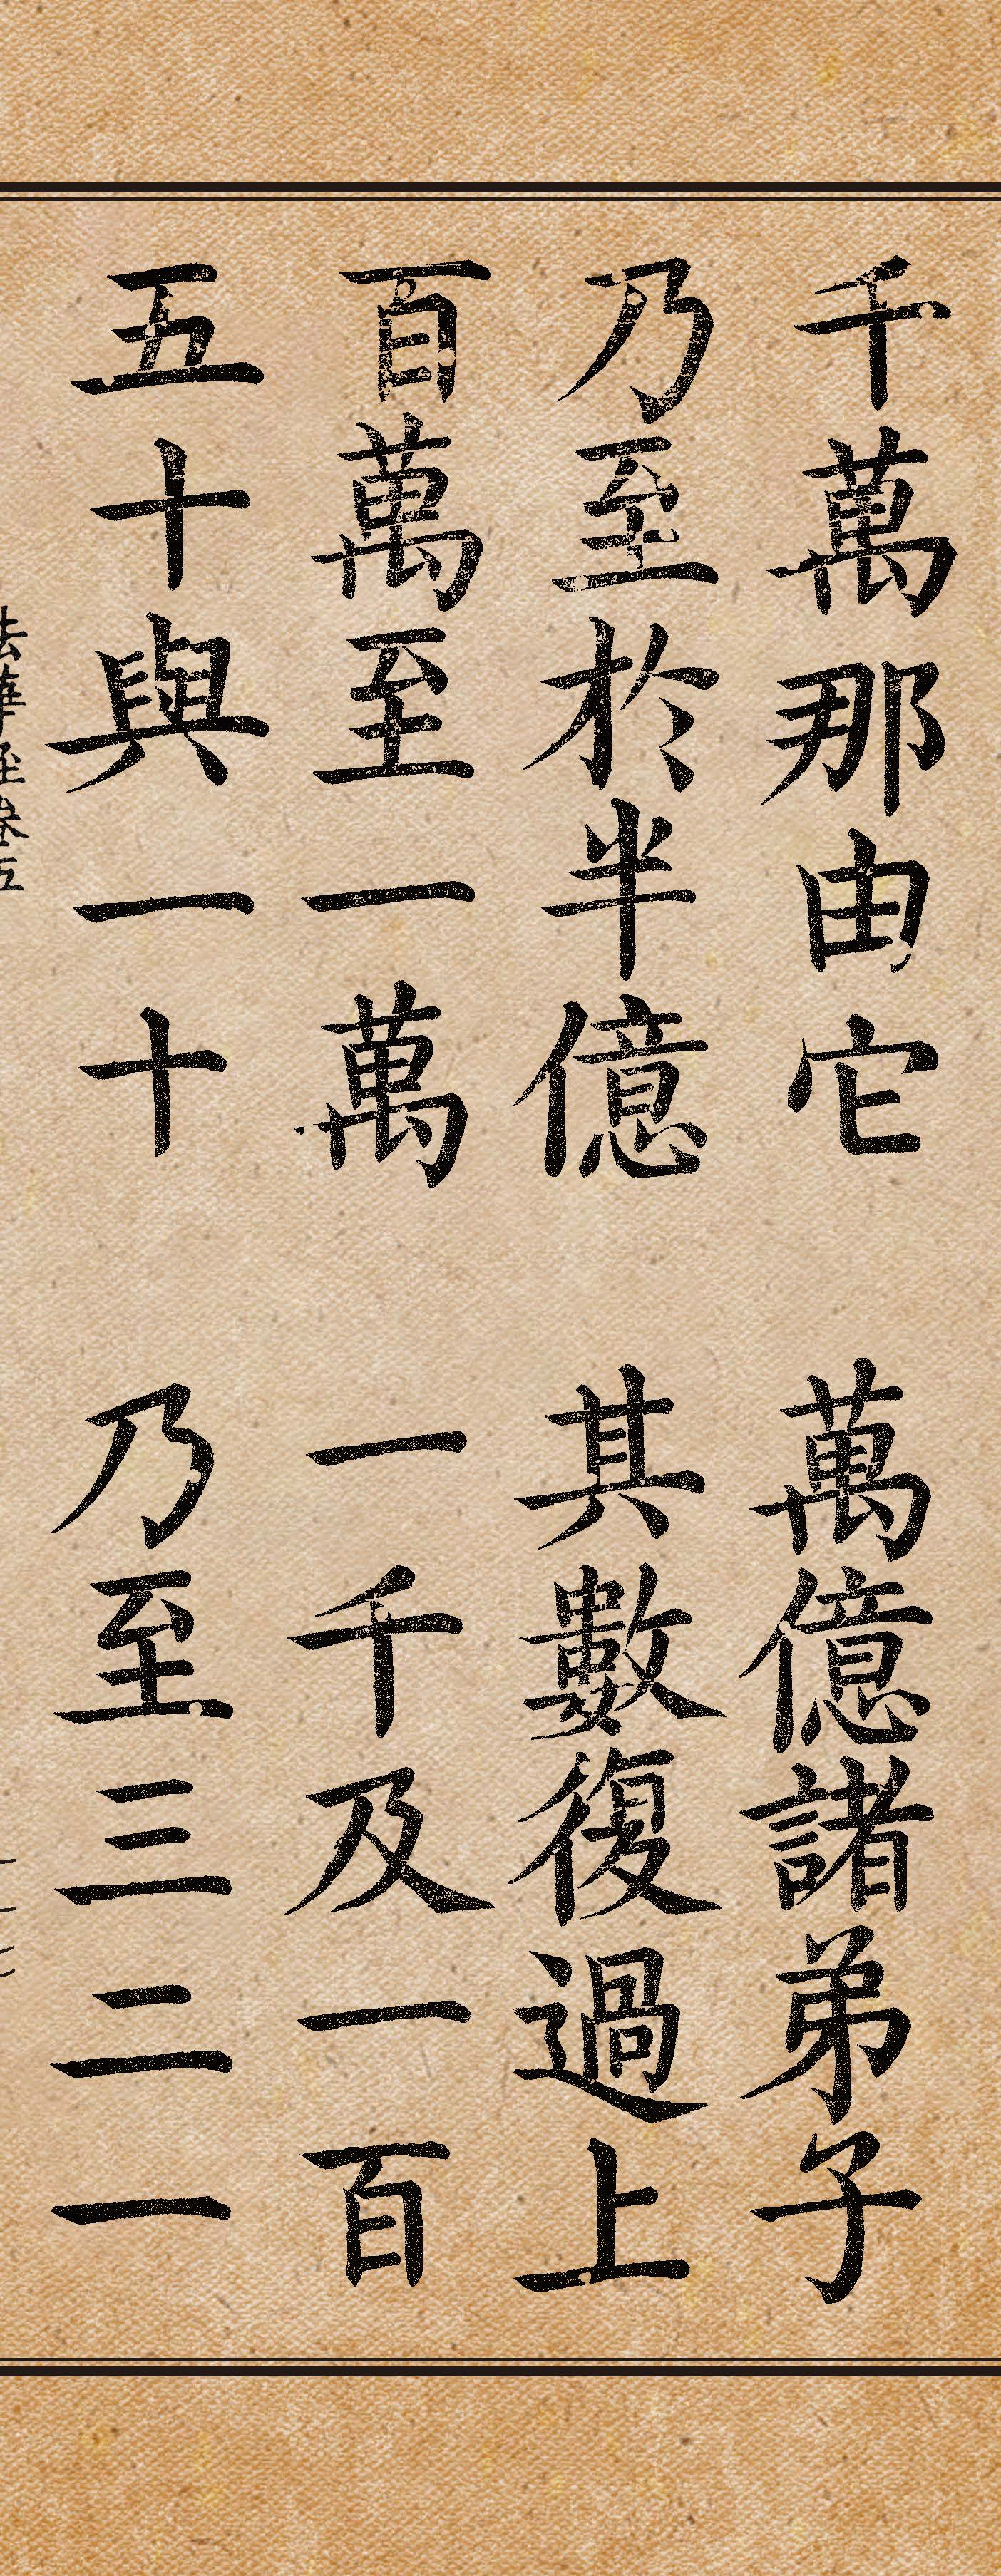 千萬那由它　萬億諸弟子
乃至於半億　其數復過上
百萬至一萬　一千及一百
五十與一十　乃至三二一
法華經卷五